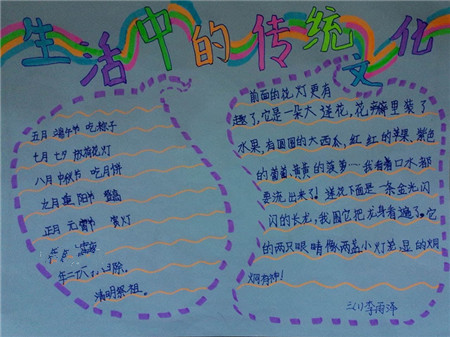 生活中的传统文化
五月 端午节 吃粽子
七月 七夕 放荷花灯
八月 中秋节 吃月饼
九月 重阳节 登高
正月 元宵节 赏灯
清明祭祖。
前面的花灯更有
趣了,它是一朵大莲花,花瓣里装了
水果,有圆圆的大西瓜,红红的苹果,紫色
的葡萄,黄黄的菠萝…我看着口水都
要流出来了!莲花下面是一条金光闪
闪的长龙,我围它把龙身看遍了。它
的两只眼睛像两盏小灯 显的炯
炯有神!
三(1)李雨泽